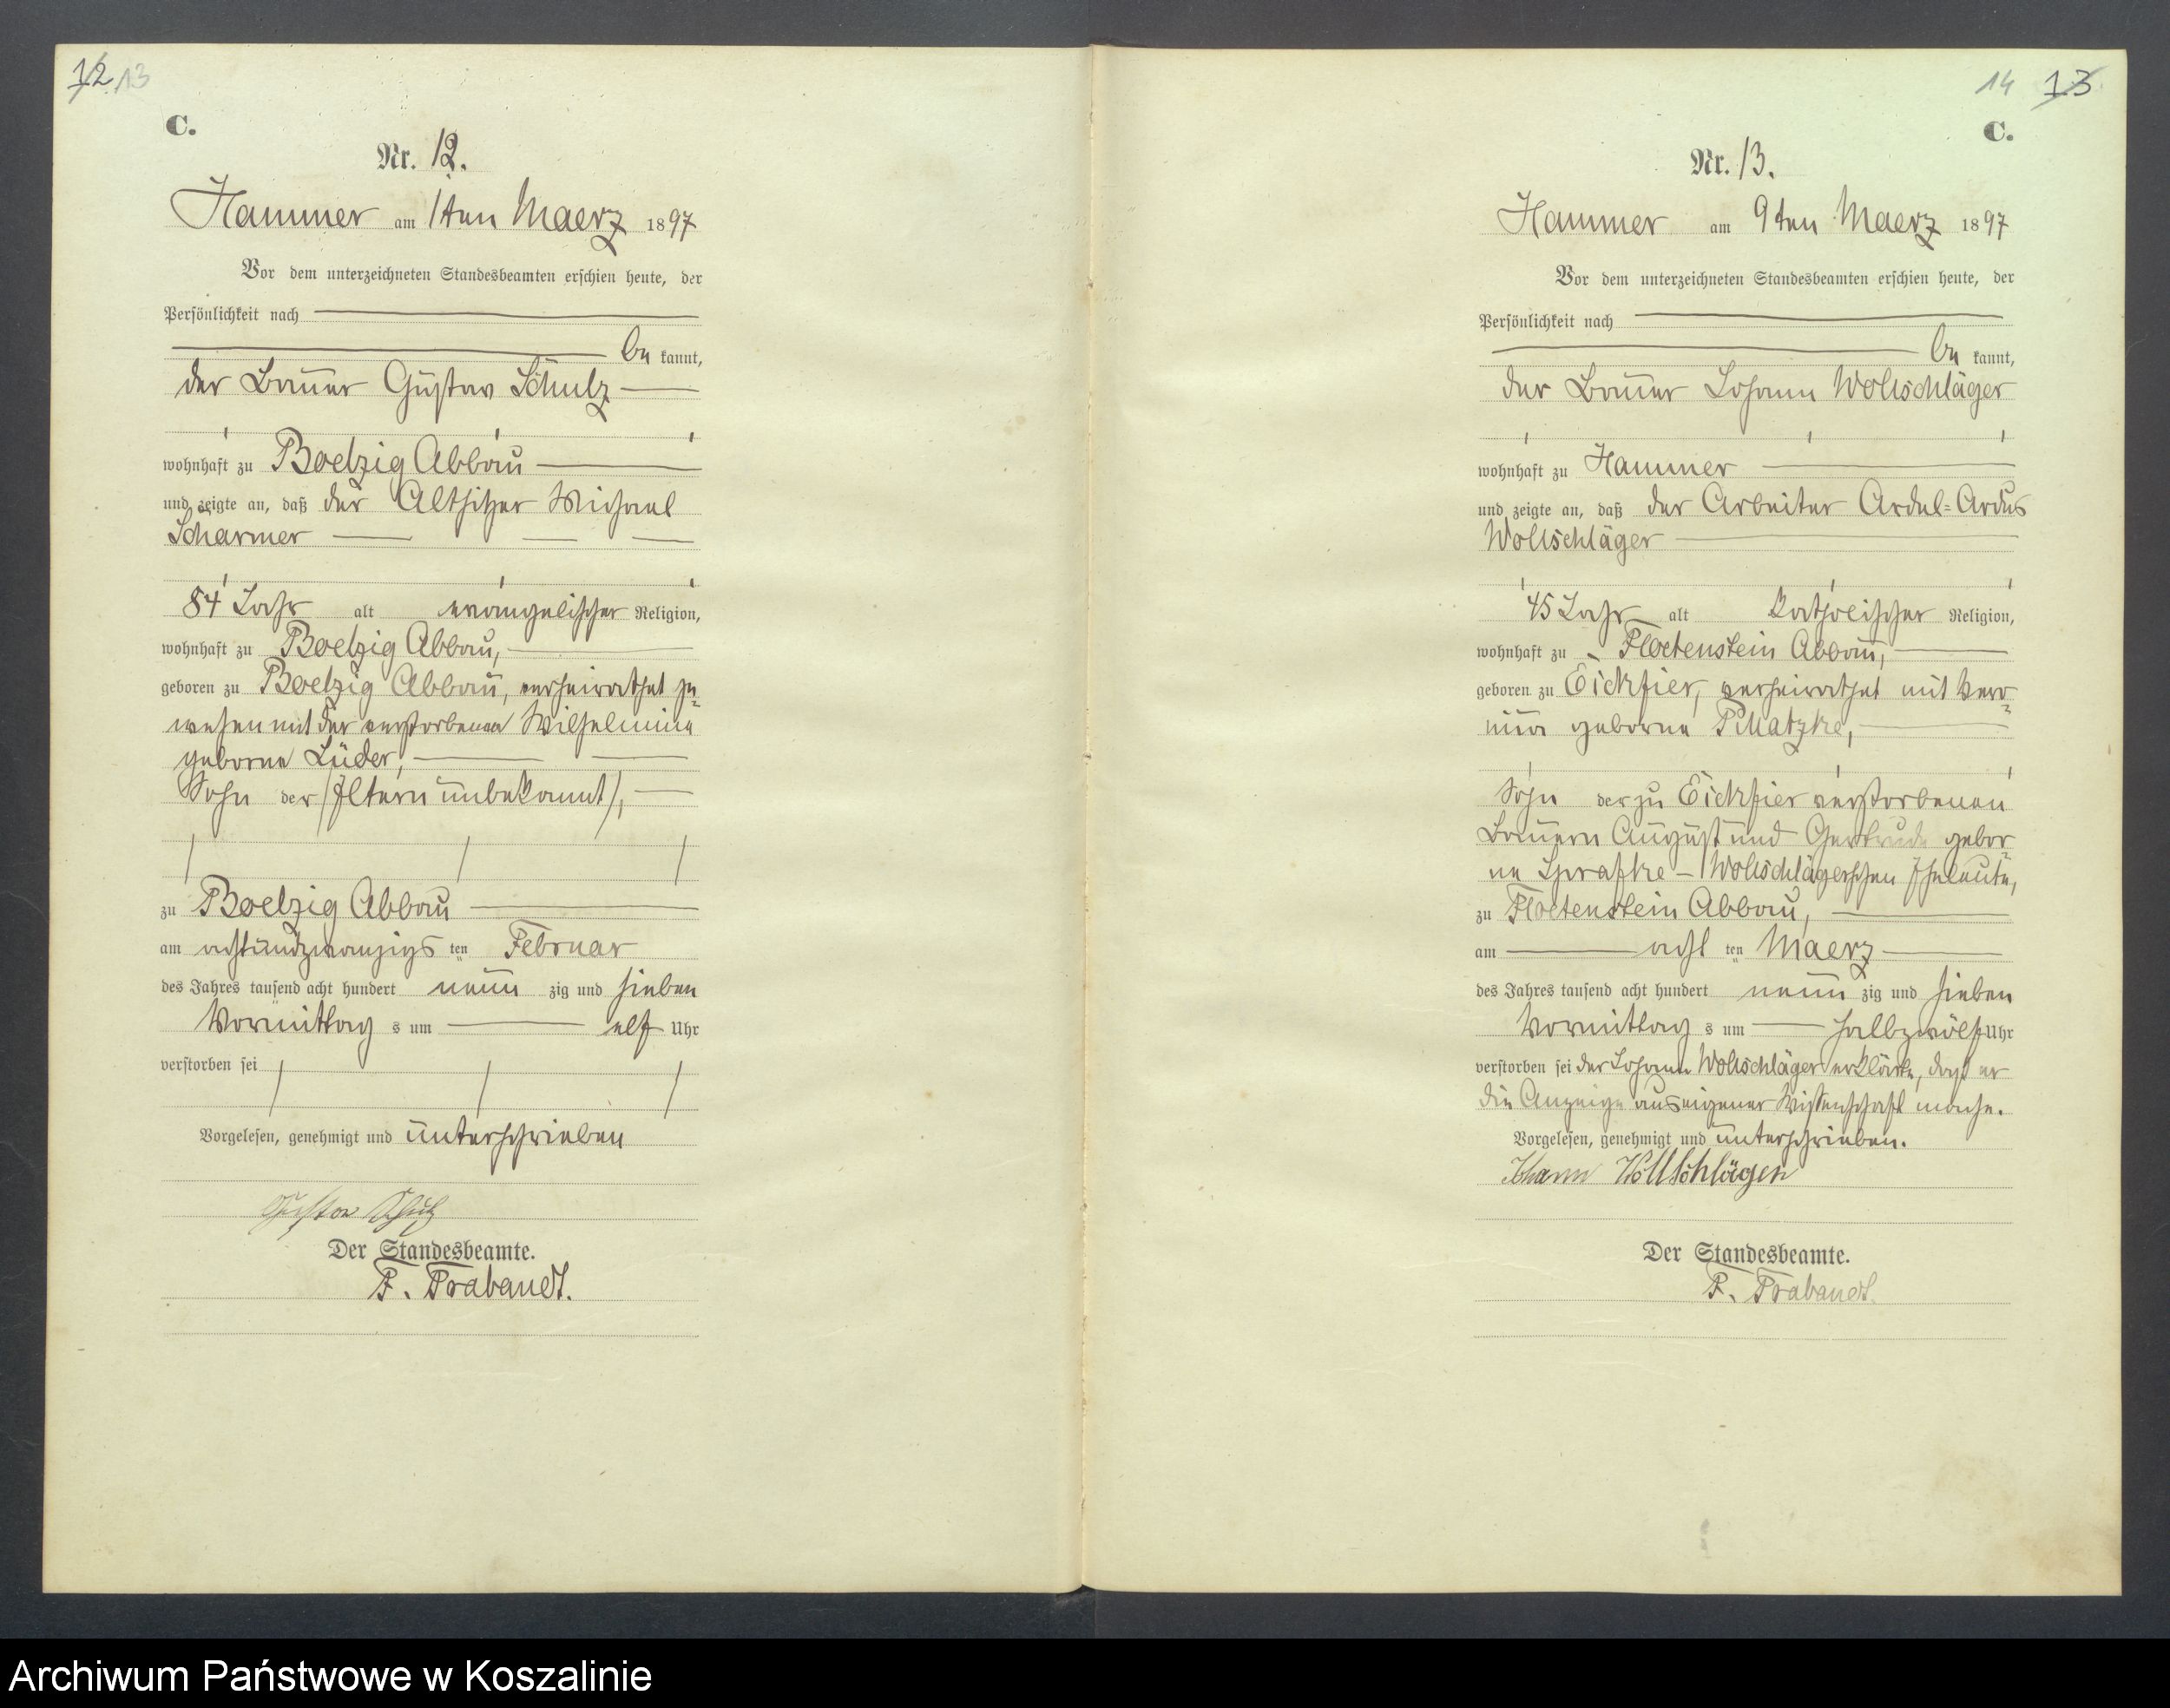 12 13
C.
Nr. 12.
Hammer am 1ten Maerz 1897
Vor dem unterzeichneten Standesbeamten erschien heute, der
Persönlichkeit nach
be kannt,
der Bauer Gustav Schulz
wohnhaft zu Boelzig Abbau
und zeigte an, daß der Altsitzer Michael
Scharmer
84 Jahr alt evangelischer Religion,
wohnhaft zu Boelzig Abbau,
geboren zu Boelzig Abbau, verheirathet ge-
wesen mit der verstorbenen Wilhelmine
geborne Lüder,
Sohn der /Eltern unbekannt/,
zu Boelzig Abbau
am achtundzwanzigs ten Februar
des Jahres tausend acht hundert neun zig und sieben
Vormittag s um elf Uhr
verstorben sei
Vorgelesen, genehmigt und unterschrieben
Gustav Schulz
Der Standesbeamte.
F. Trabandt.
14 13
C.
Nr. 13.
Hammer am 9ten Maerz 1897
Vor dem unterzeichneten Standesbeamten erschien heute, der
Persönlichkeit nach
be kannt,
der Bauer Johann Wollschläger
wohnhaft zu Hammer
und zeigte an, daß der Arbeiter
Wollschläger
45 Jahr alt katholischer Religion,
wohnhaft zu Floetenstein Abbau,
geboren zu Eickfier, verheirathet mit Vero-
nica geborne Pillatzke,
Sohn der zu Eickfier verstorbenen
Bauern August und Gertrude gebor-
ne Wollschlägerschen Eheleute,
zu Floetenstein Abbau,
am acht ten Maerz
des Jahres tausend acht hundert neun zig und sieben
Vormittag s um halbzwölf Uhr
verstorben sei der Johann Wollschläger erklärte, daß er
die Anzeige aus eigener Wissenschaft mache.
Vorgelesen, genehmigt und unterschrieben.
Johann Wollschläger
Der Standesbeamte.
F. Trabandt.
Archiwum Państwowe w Koszalinie